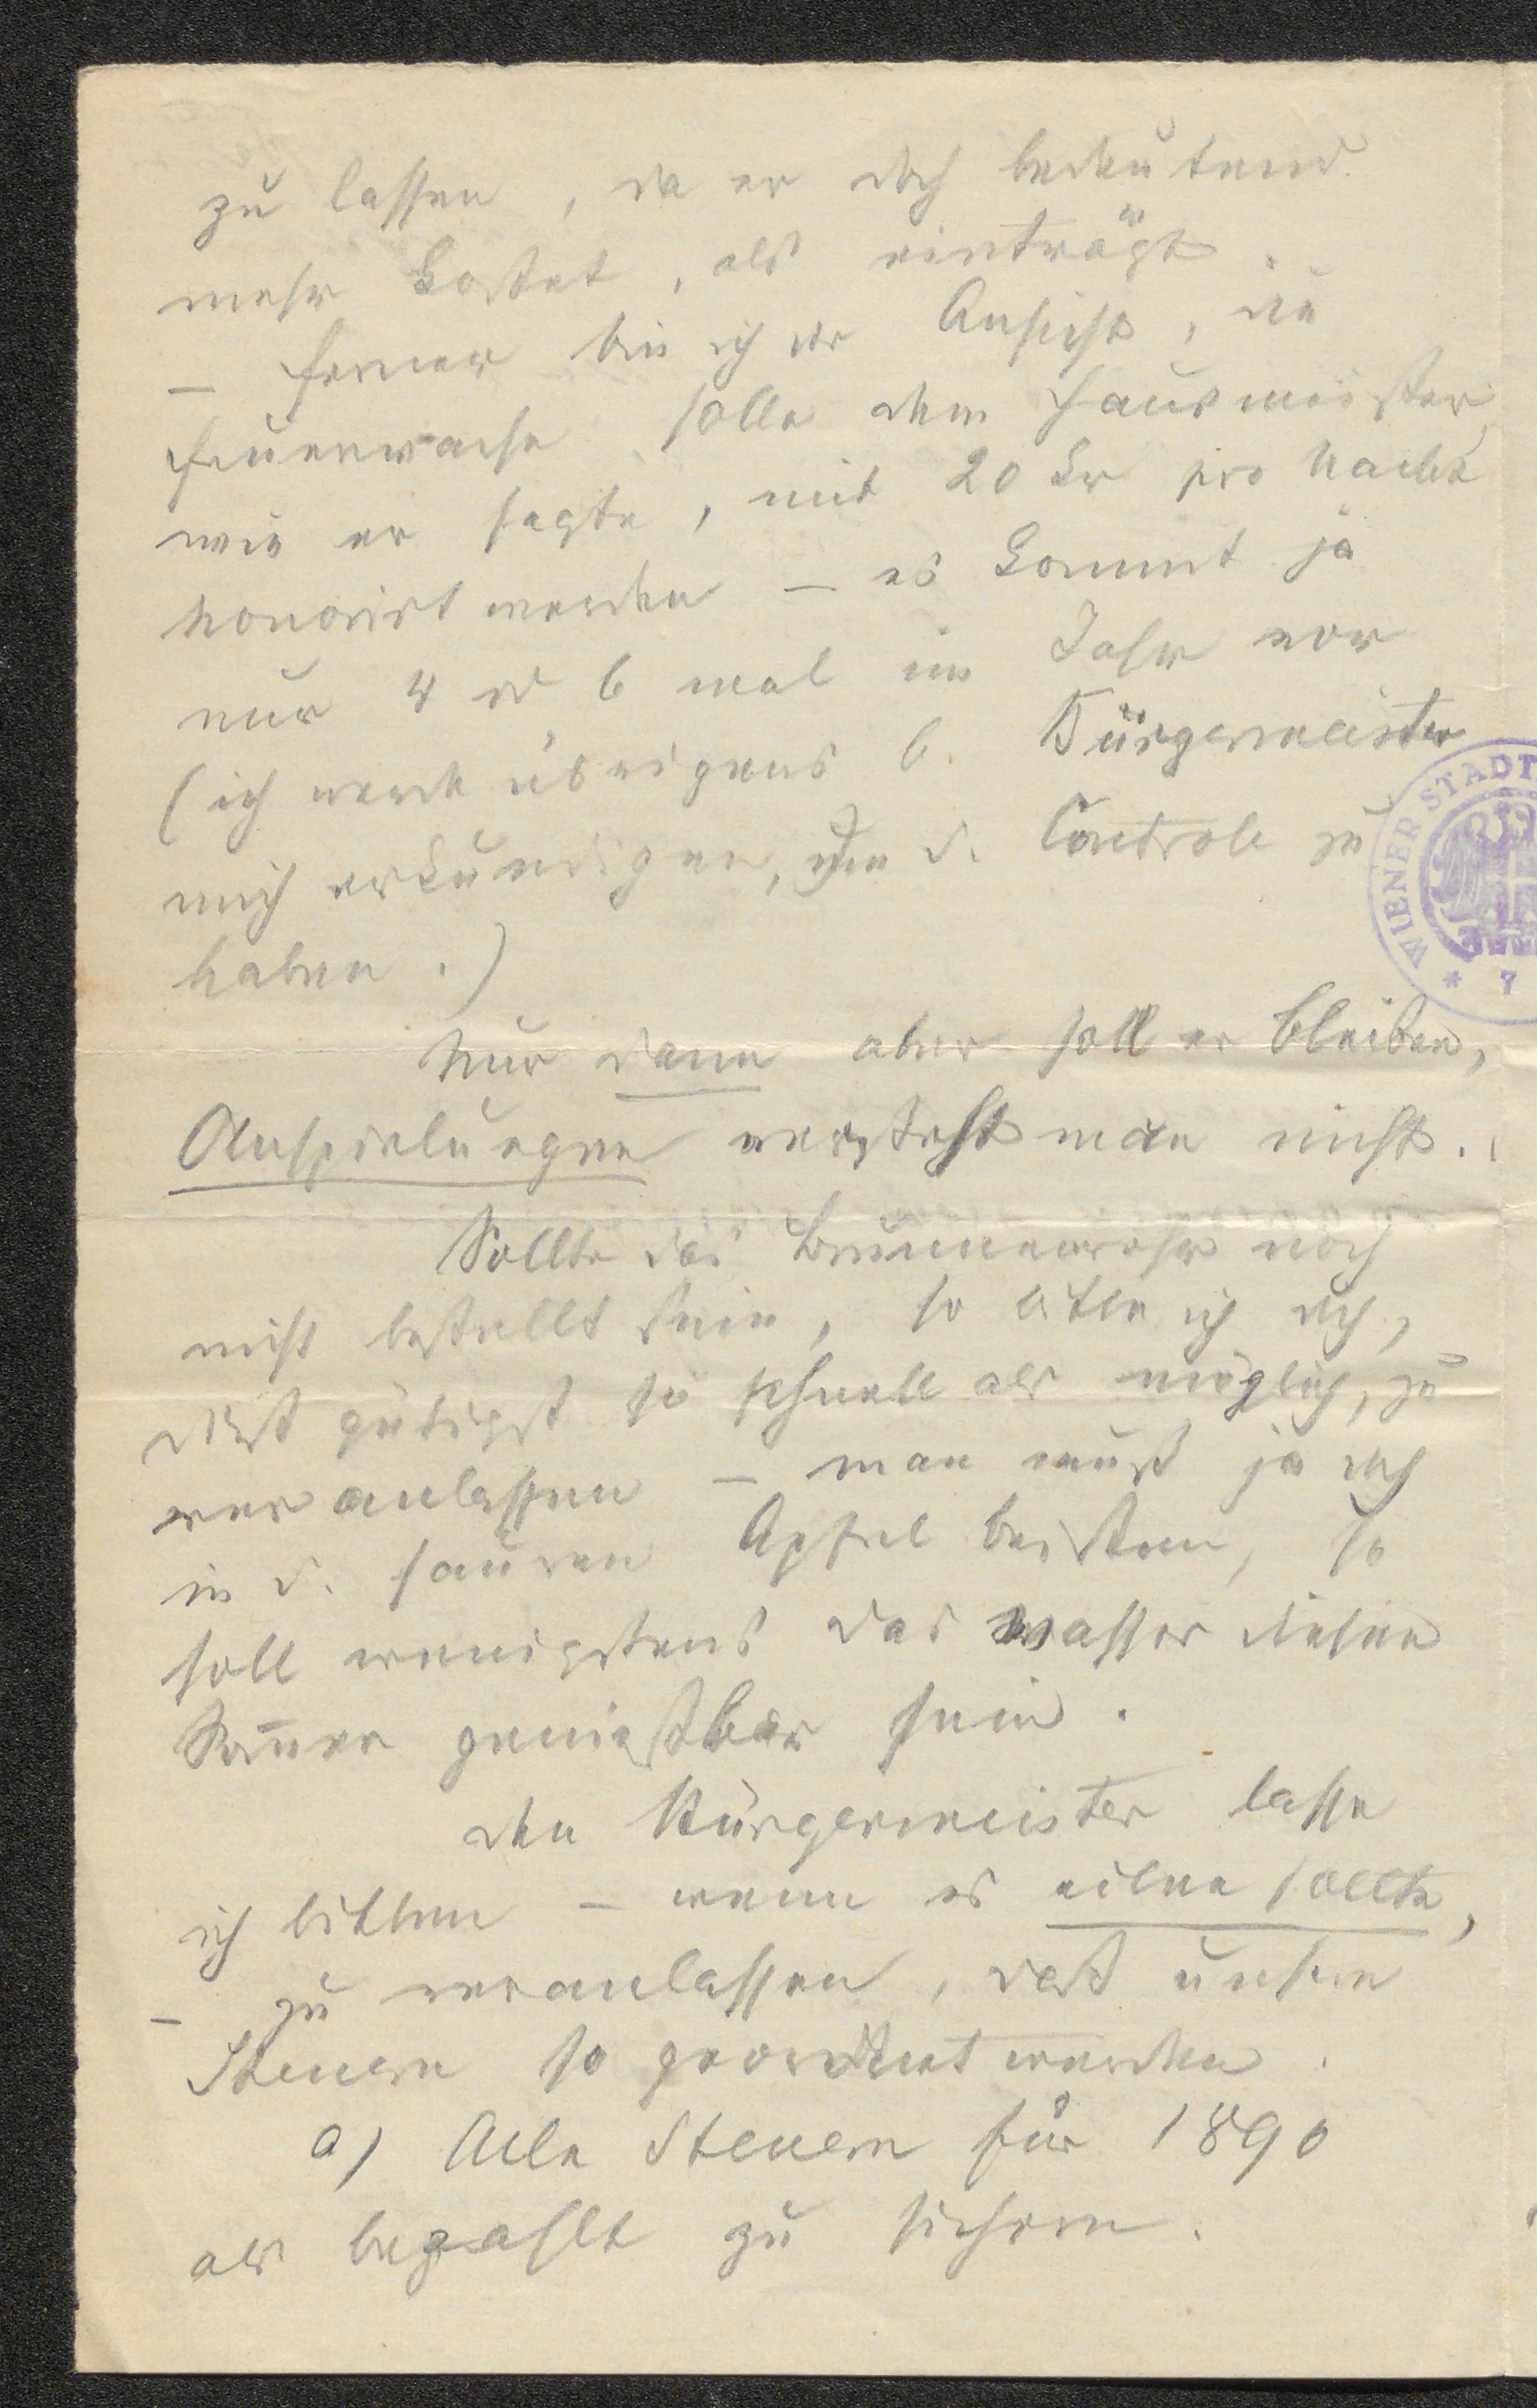 zu lassen, da er doch bedeutend
mehr kostet, als einträgt.
– Ferner bin ich der Ansicht, die
Feuerwache solle dem Hausmeister,
wie er sagte, mit 20 Kr pro Nacht
honorirt werden – es kommt ja
nur 4 od 6 mal im Jahr vor
(ich werde übrigens b. Bürgermeister
mich erkundigen, um d. Controle zu
haben.)
Nur dann aber soll er bleiben,
Anspielungen versteht man nicht.
Sollte das Brunnenrohr noch
nicht bestellt sein, so bitte ich dch,
dieß gütigst so schnell als möglich, zu
veranlassen – man muß ja doch
in d. sauren Apfel beißen, so
soll wenigstens das Wasser diesen
Som̅er genießbar sein.
Den Bürgermeister lasse
ich bitten – wenn es eilen sollte,
– zu veranlassen, daß unsere
Steuern so geordnet werden.
a) Alle Steuern für 1890
als bezahlt zu sichern.
WIENER STADT
* 7